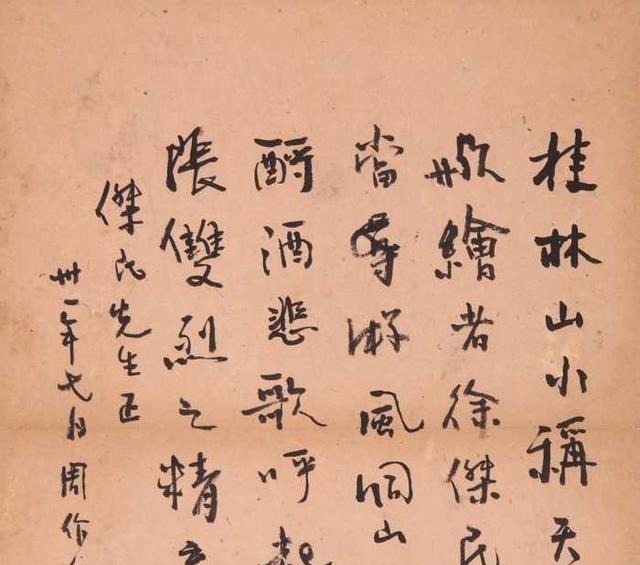 桂林山水稱天
繪者徐傑民
游風洞山
酹酒悲歌呼起
張雙烈之精
傑民先生正
卅一年七月周作